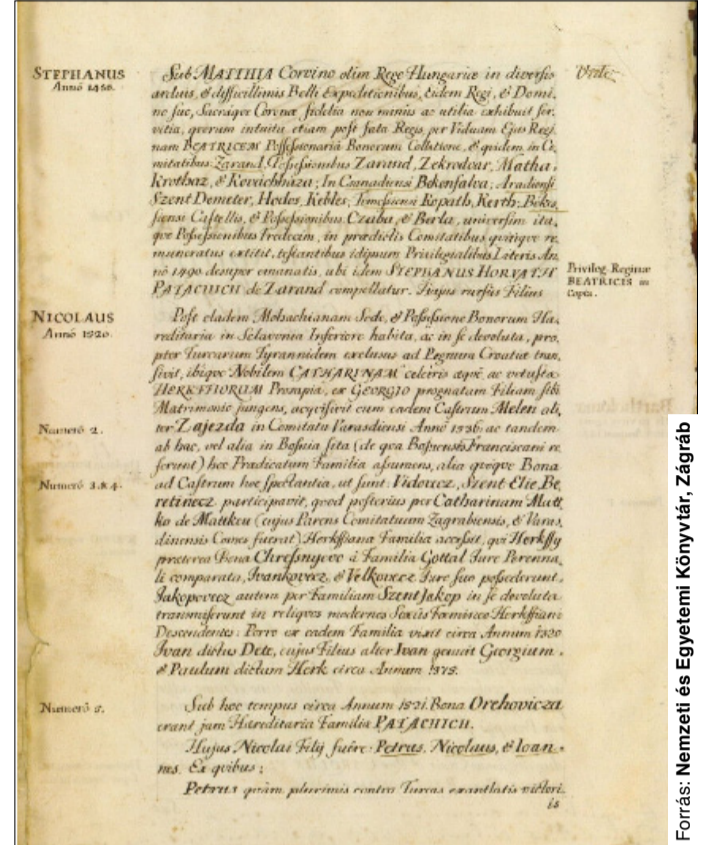 STEPHANUS
Annô 1450.
Sub MATTHIA Corvino olim Rege Hungariæ in diversis
arduis, & difficillimis Belli Expeditionibus, Eidem Regi, & Domi„
no suo, Sacræqve Coronæ fidelia non minus ac utilia exhibuit ser„
vitia, qvorum intuitu etiam post fata Regis, per Viduam Ejus Regi„
nam BEATRICEM Possessionaria Bonorum Collatione, & qvidem in Co„
mitatibus Zarand, Possessionibus Zarand, Zekrodvar, Matha,
Krothaz, & Kovachhaza; In Csanadiensi Bekenfalva; Aradiensi
Szent Demeter, Hodos, Kebles; Temessiensi Kopath, Kerth; Bekes„
siensi Castellis, & Possessionibus Czaba, & Berla, universim ita„
qve Possessionibus tredecim, in prædictis Comitatibus qvinqve re„
muneratus extitit, testantibus idipsum Privilegialibus Lateris An„
nô 1490. desuper emanatis, ubi idem STEPHANUS HORVATH
PATACHICH de Zarand compellatur. Hujus rursus Filius
Privileg. Reginæ
BEATRICIS in
Copia.
NICOLAUS
Annô 1520.
Post cladem Mohachianam Sede, & Possessione Bonorum Hæ„
reditaria in Sclavonia Inferiore habita, ac in se devoluta, pro„
pter Turcarum Tyrannidem exclusus ad Regnum Croatiæ tran„
sivit, ibiqve Nobilem CATHARINAM celebris æqvè, ac vetustæ
HERKFFIORUM Prosapiæ, ex GEORGIO prognatam Filiam sibi
Matrimonio jungens, acqvisivit cum eadem Castrum Melen ali„
ter Zajezda in Comitatu Varasdiensi Annô 1536. ac tandem
Numerô 2.
ab hac, vel alia in Bosnia sita (de qva Bosnensis Franciscani re„
ferunt) hoc Prædicatum Familia assumens, alia qvoqve Bona
Numerô 3. & 4.
ad Castrum hoc spectantia, ut sunt: Vidovecz, Szent Elie, Be„
retinecz participavit, qvod posterius per Catharinam Matt„
ko de Mattkeu (cujus Parens Comitatuum Zagrabiensis, & Varas„
dinensis Comes fuerat) Herkffiana Familia accessit, qvi Herkffy
præterea Bona Chressnyevo à Familia Gottal Jure Perenna„
li comparata, Ivankovecz, & Velkovecz Jure suo possederunt,
Jakopovecz autem per Familiam Szent Jakop in se devoluta
transmiserunt in reliqvos modernos Sexûs Fœminei Herkffiani
Descendentes: Porro ex eadem Familia vixit circa Annum 1320
Ivan dictus Dete, cujus Filius alter Ivan genuit Georgium,
& Paulum dictum Herk circa Annum 1375.
Numerô 5.
Sub hoc tempus circa Annum 1521. Bona Orehovicza
erant jam Hæreditaria Familiæ PATACHICH.
Hujus Nicolai Filij fuêre: Petrus, Nicolaus, & Ioan„
nes. Ex qvibus:
Petrus qvàm plurimis contra Turcas exantlatis victori„
is
Forrás: Nemzeti és Egyetemi Könyvtár, Zágráb